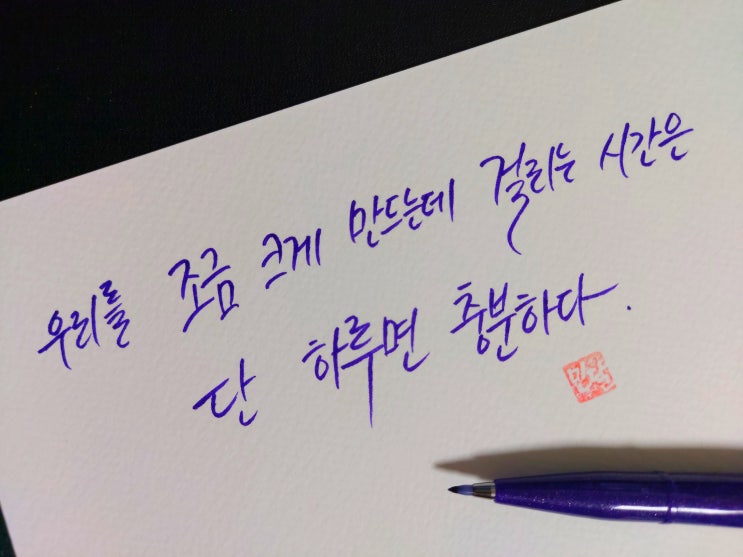 우리를 조금 크게 만드는데 걸리는 시간은
단 하루면 충분하다.